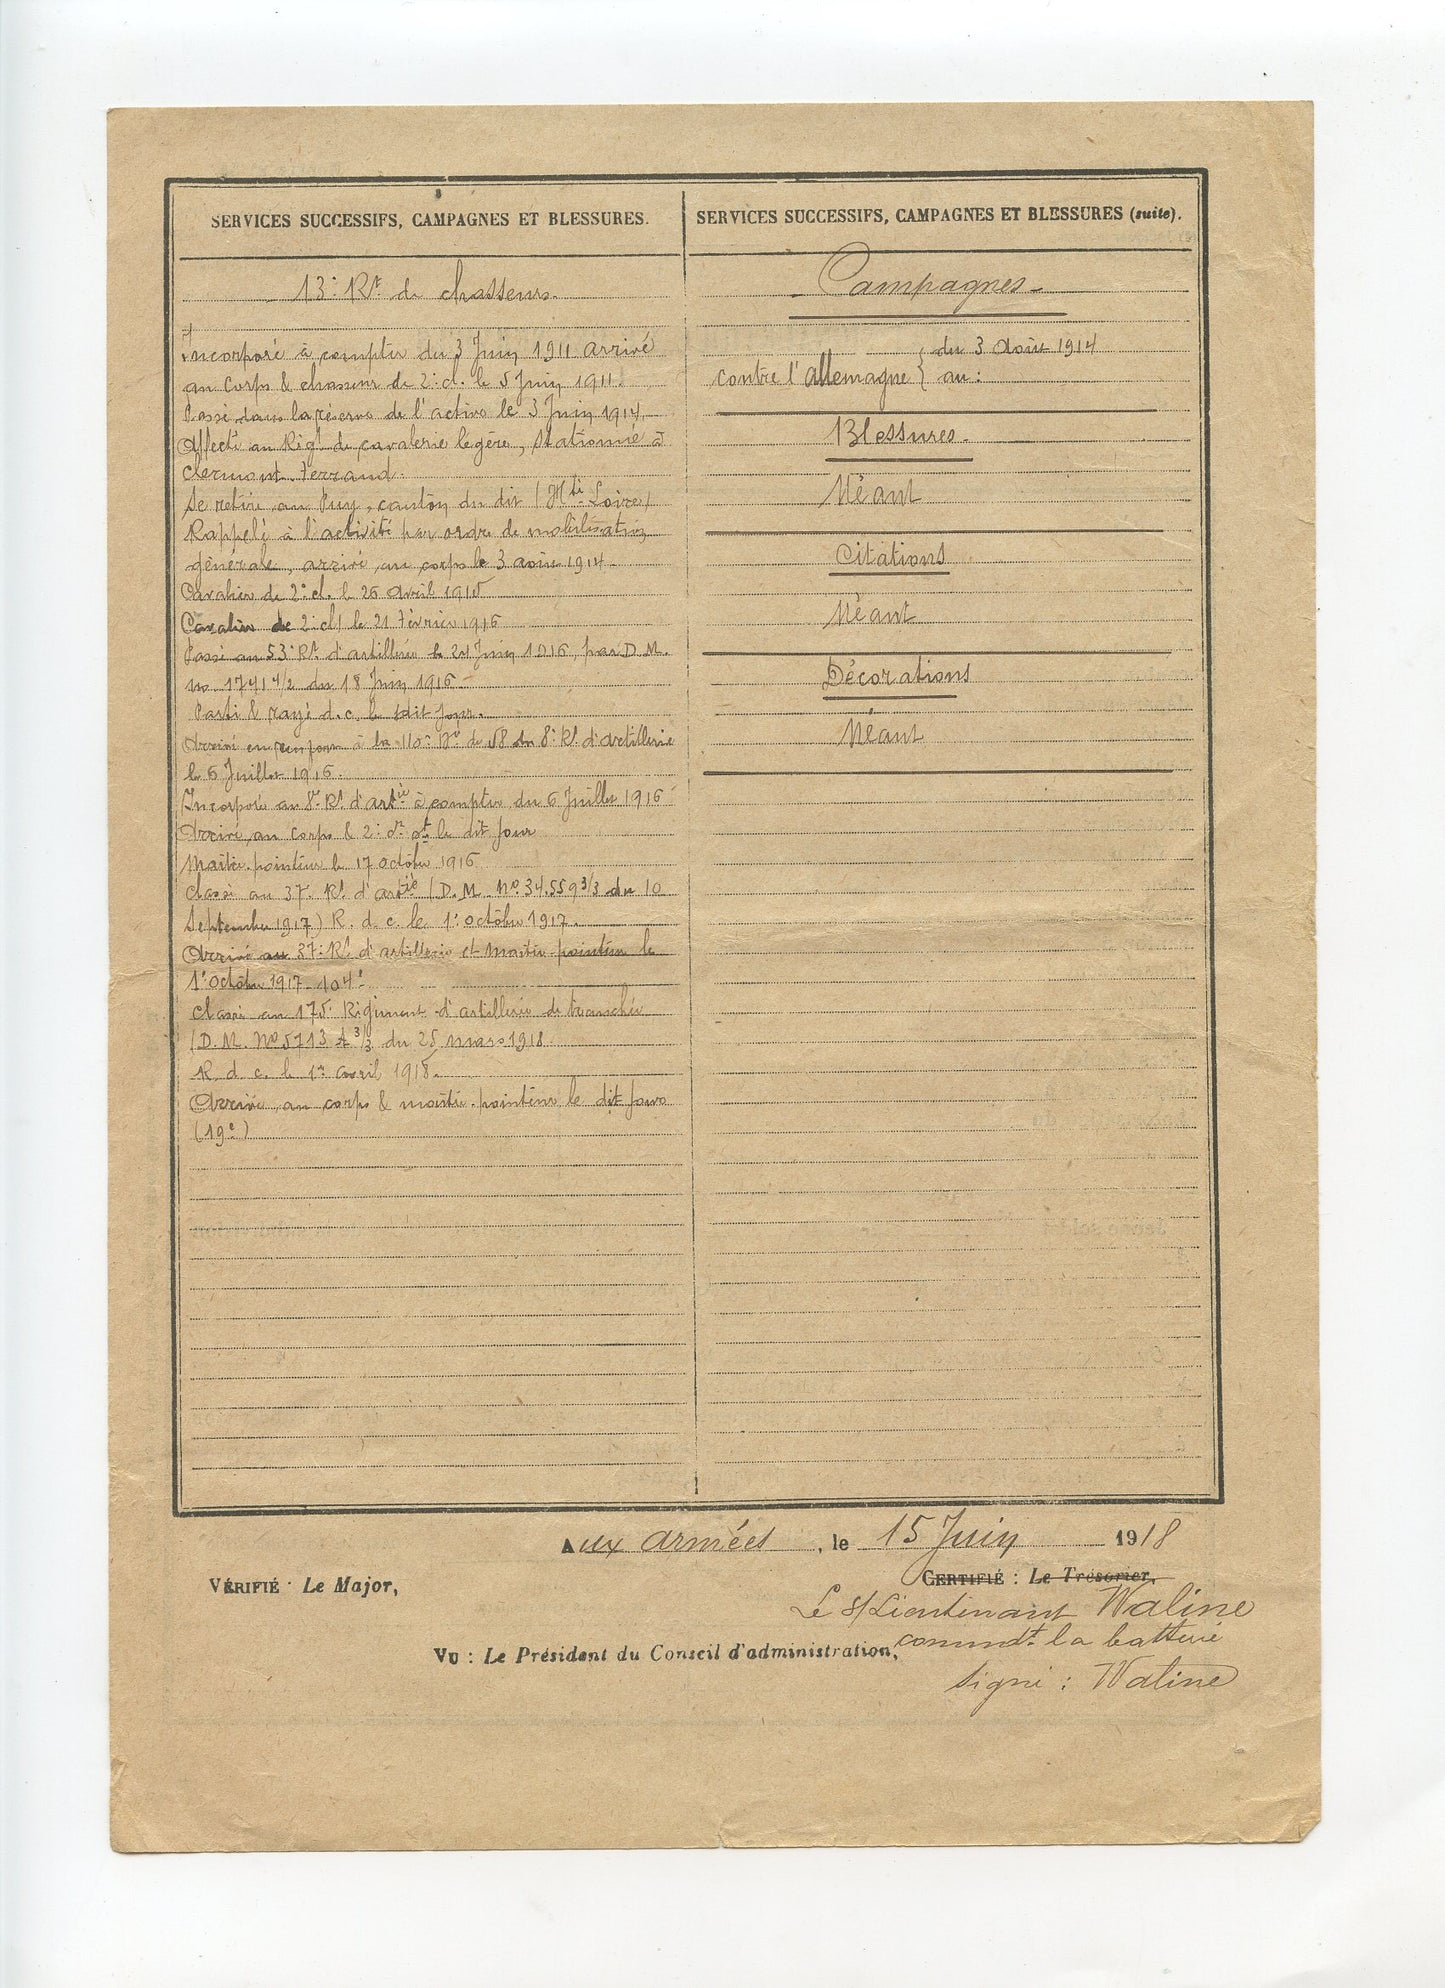 SERVICES SUCCESSIFS, CAMPAGNES ET BLESSURES.
13e Rt de chasseurs.
Incorporé à compter du 3 Juin 1911 arrivé
au corps & chasseur de 2e cl. le 5 Juin 1911.
Passé dans la réserve de l'active le 3 Juin 1914.
Affecté au Rigt de cavalerie légère, stationné à
Clermont-Ferrand.
Se retire au Puy, canton du dit (Hte Loire)
Rappelé à l'activité par ordre de mobilisation
générale, arrivé au corps le 3 août 1914.
Cavalier de 2e cl. le 26 Avril 1915
Cavalier de 2e cl le 21 Février 1916
Passé au 53e Rt d'artillerie le 24 Juin 1916, par D.M.
no 1741 4/2 du 18 Juin 1916
Parti & rayé d.c. le dit jour.
Arrivé en renfort à la 110e Bie de 58 du 8e Rt d'artillerie
le 6 Juillet 1916.
Incorporé au 8e Rt d'artie à compter du 6 Juillet 1916
Arrivé au corps & 2e le dit jour
Maître-pointeur le 17 octobre 1916
Classé au 37e Rt d'artie (D.M. No 34.559 3/3 du 10
Septembre 1917) R. d. c. le 1e octobre 1917.
Arrivé au 37e Rt d'artillerie et maître-pointeur le
1e octobre 1917 - 104e
Classé au 175e Régiment d'artillerie de tranchée
(D.M. No 5713 A 3/3 du 25 mars 1918
R. d. c. le 1er avril 1918.
Arrivé au corps & maître-pointeur le dit jour
(19e)
SERVICES SUCCESSIFS, CAMPAGNES ET BLESSURES (suite).
Campagnes
contre l'allemagne } du 3 Août 1914
au :
Blessures
Néant
Citations
Néant
Décorations
Néant
Aux armées, le 15 Juin 1918
VÉRIFIÉ : Le Major,
CERTIFIÉ : Le Trésorier.
Le s/Lieutenant Waline
commdt la batterie
VU : Le Président du Conseil d'administration,
signé : Waline